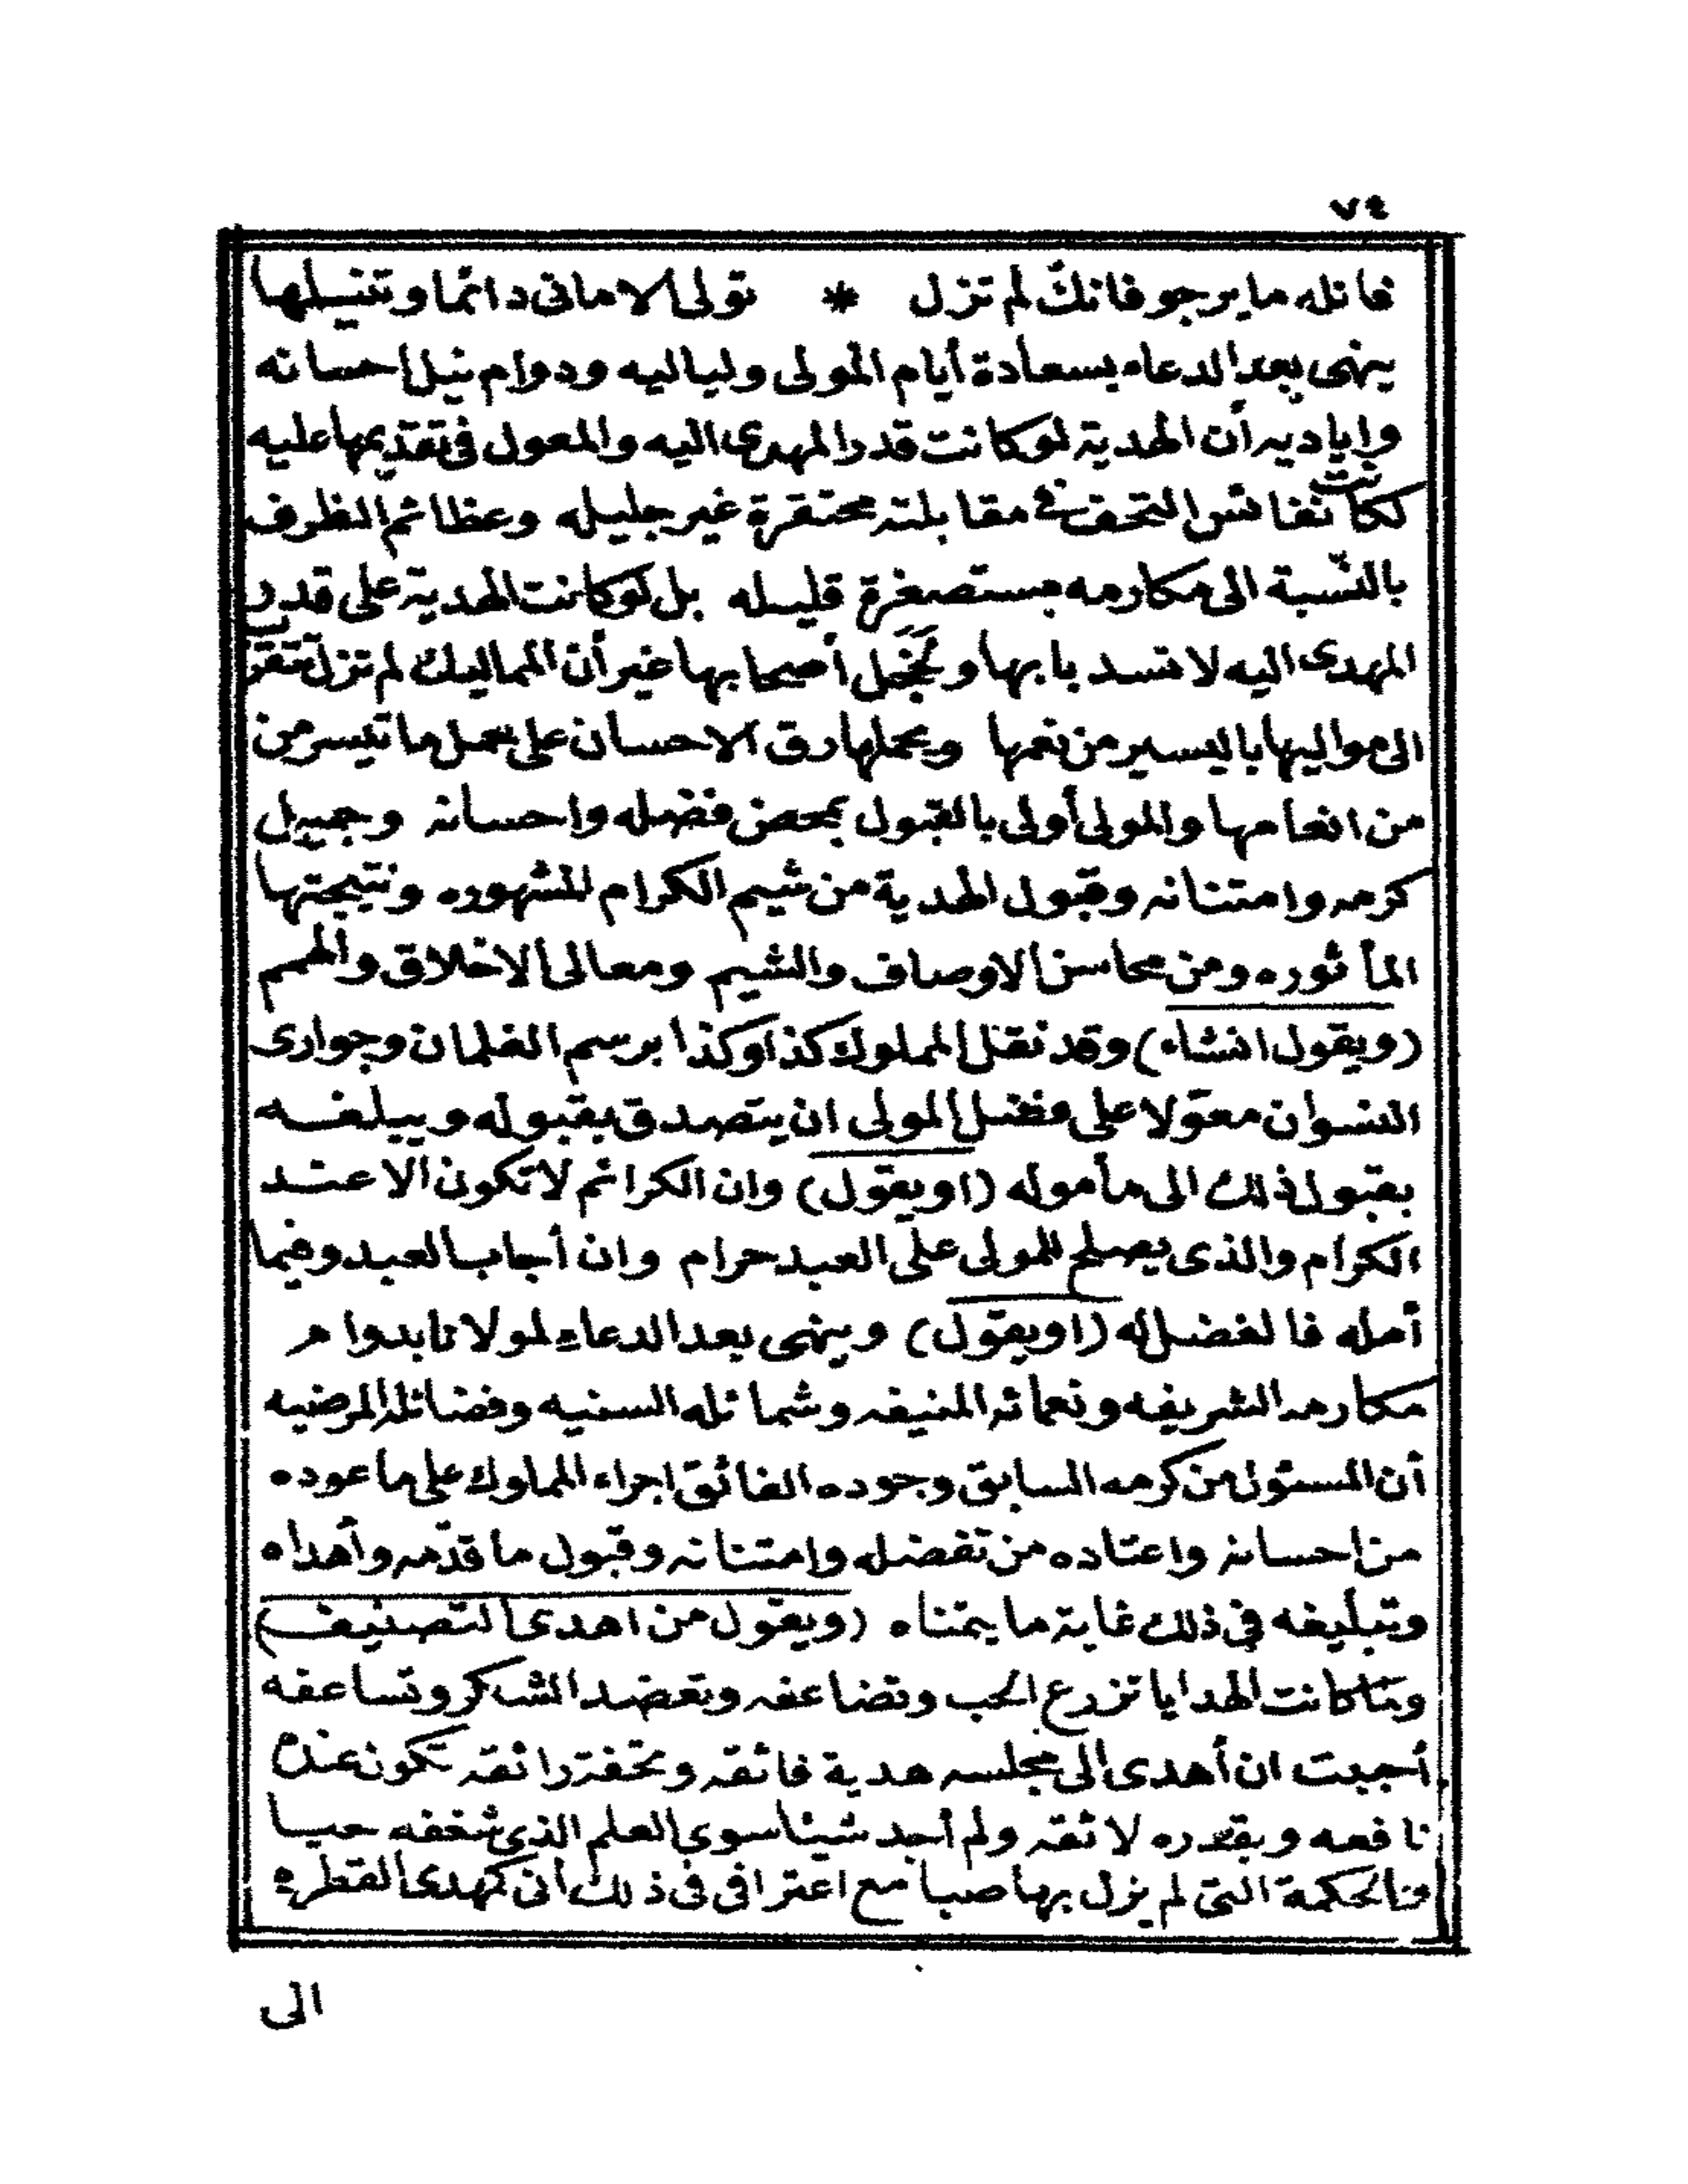 ٧٤
فانله ما يرجو فانك لم تزل * تولى الامانى دائما وتنيلها
ينهى بعد الدعاء بسعادة أيام المولى ولياليه ودوام نيل احسانه
واياديه أن الهدية لو كانت قدر المهدى اليه والمعول فى تقديمها عليه
لكانت نفائس التحف فى مقابلته محتقرة غير جليله وعظائم الظرف
بالنسبة الى مكارمه مستصغرة قليله بل لو كانت الهدية على قدر
المهدى اليه لانسد بابها وخجل أصحابها غير أن المماليك لم تزل تتقرب
الى مواليها باليسير من نعمها ويحملها رق الاحسان على حمل ما تيسر من
من انعامها والمولى أولى بالقبول بمحض فضله واحسانه وجميل
كرمه وامتنانه وقبول الهدية من شيم الكرام المشهوره ونتيجتها
المأثوره ومن محاسن الاوصاف والشيم ومعالى الاخلاق والهمم
(ويقول انشاء) وقد نقل المملوك كذا وكذا برسم الغلمان وجوارى
النسوان معوّلا على فضل المولى ان يتصدق بقبوله ويبلغه
بقبول ذلك الى مأموله (او يقول) وان الكرائم لا تكون الا عند
الكرام والذى يصلح للمولى على العبد حرام وان أجاب العبد وفيما
أمله فالفضل له (او يقول) وينهى بعد الدعاء لمولانا بدوام
مكارمه الشريفه ونعمائه المنيفه وشمائله السنيه وفضائله المرضيه
أن المسئول من كرمه السابق وجوده الفائق اجراء المملوك على ما عوده
من احسانه واعتاده من تفضله وامتنانه وقبول ما قدّمه وأهداه
وتبليغه فى ذلك غاية ما يتمناه (ويقول من اهدى التصنيف)
ولما كانت الهدايا تزرع الحب وتضاعفه وتعضد الشكر وتساعفه
أحببت ان أهدى الى مجلسه هدية فائقه وتحفة رائقه تكون عنده
نافعه وبقدره لائقه ولم أجد شيئا سوى العلم الذى شغفه حبا
والحكمة التى لم يزل بها صبا مع اعترافى فى ذلك انى كمهدى القطره
الى